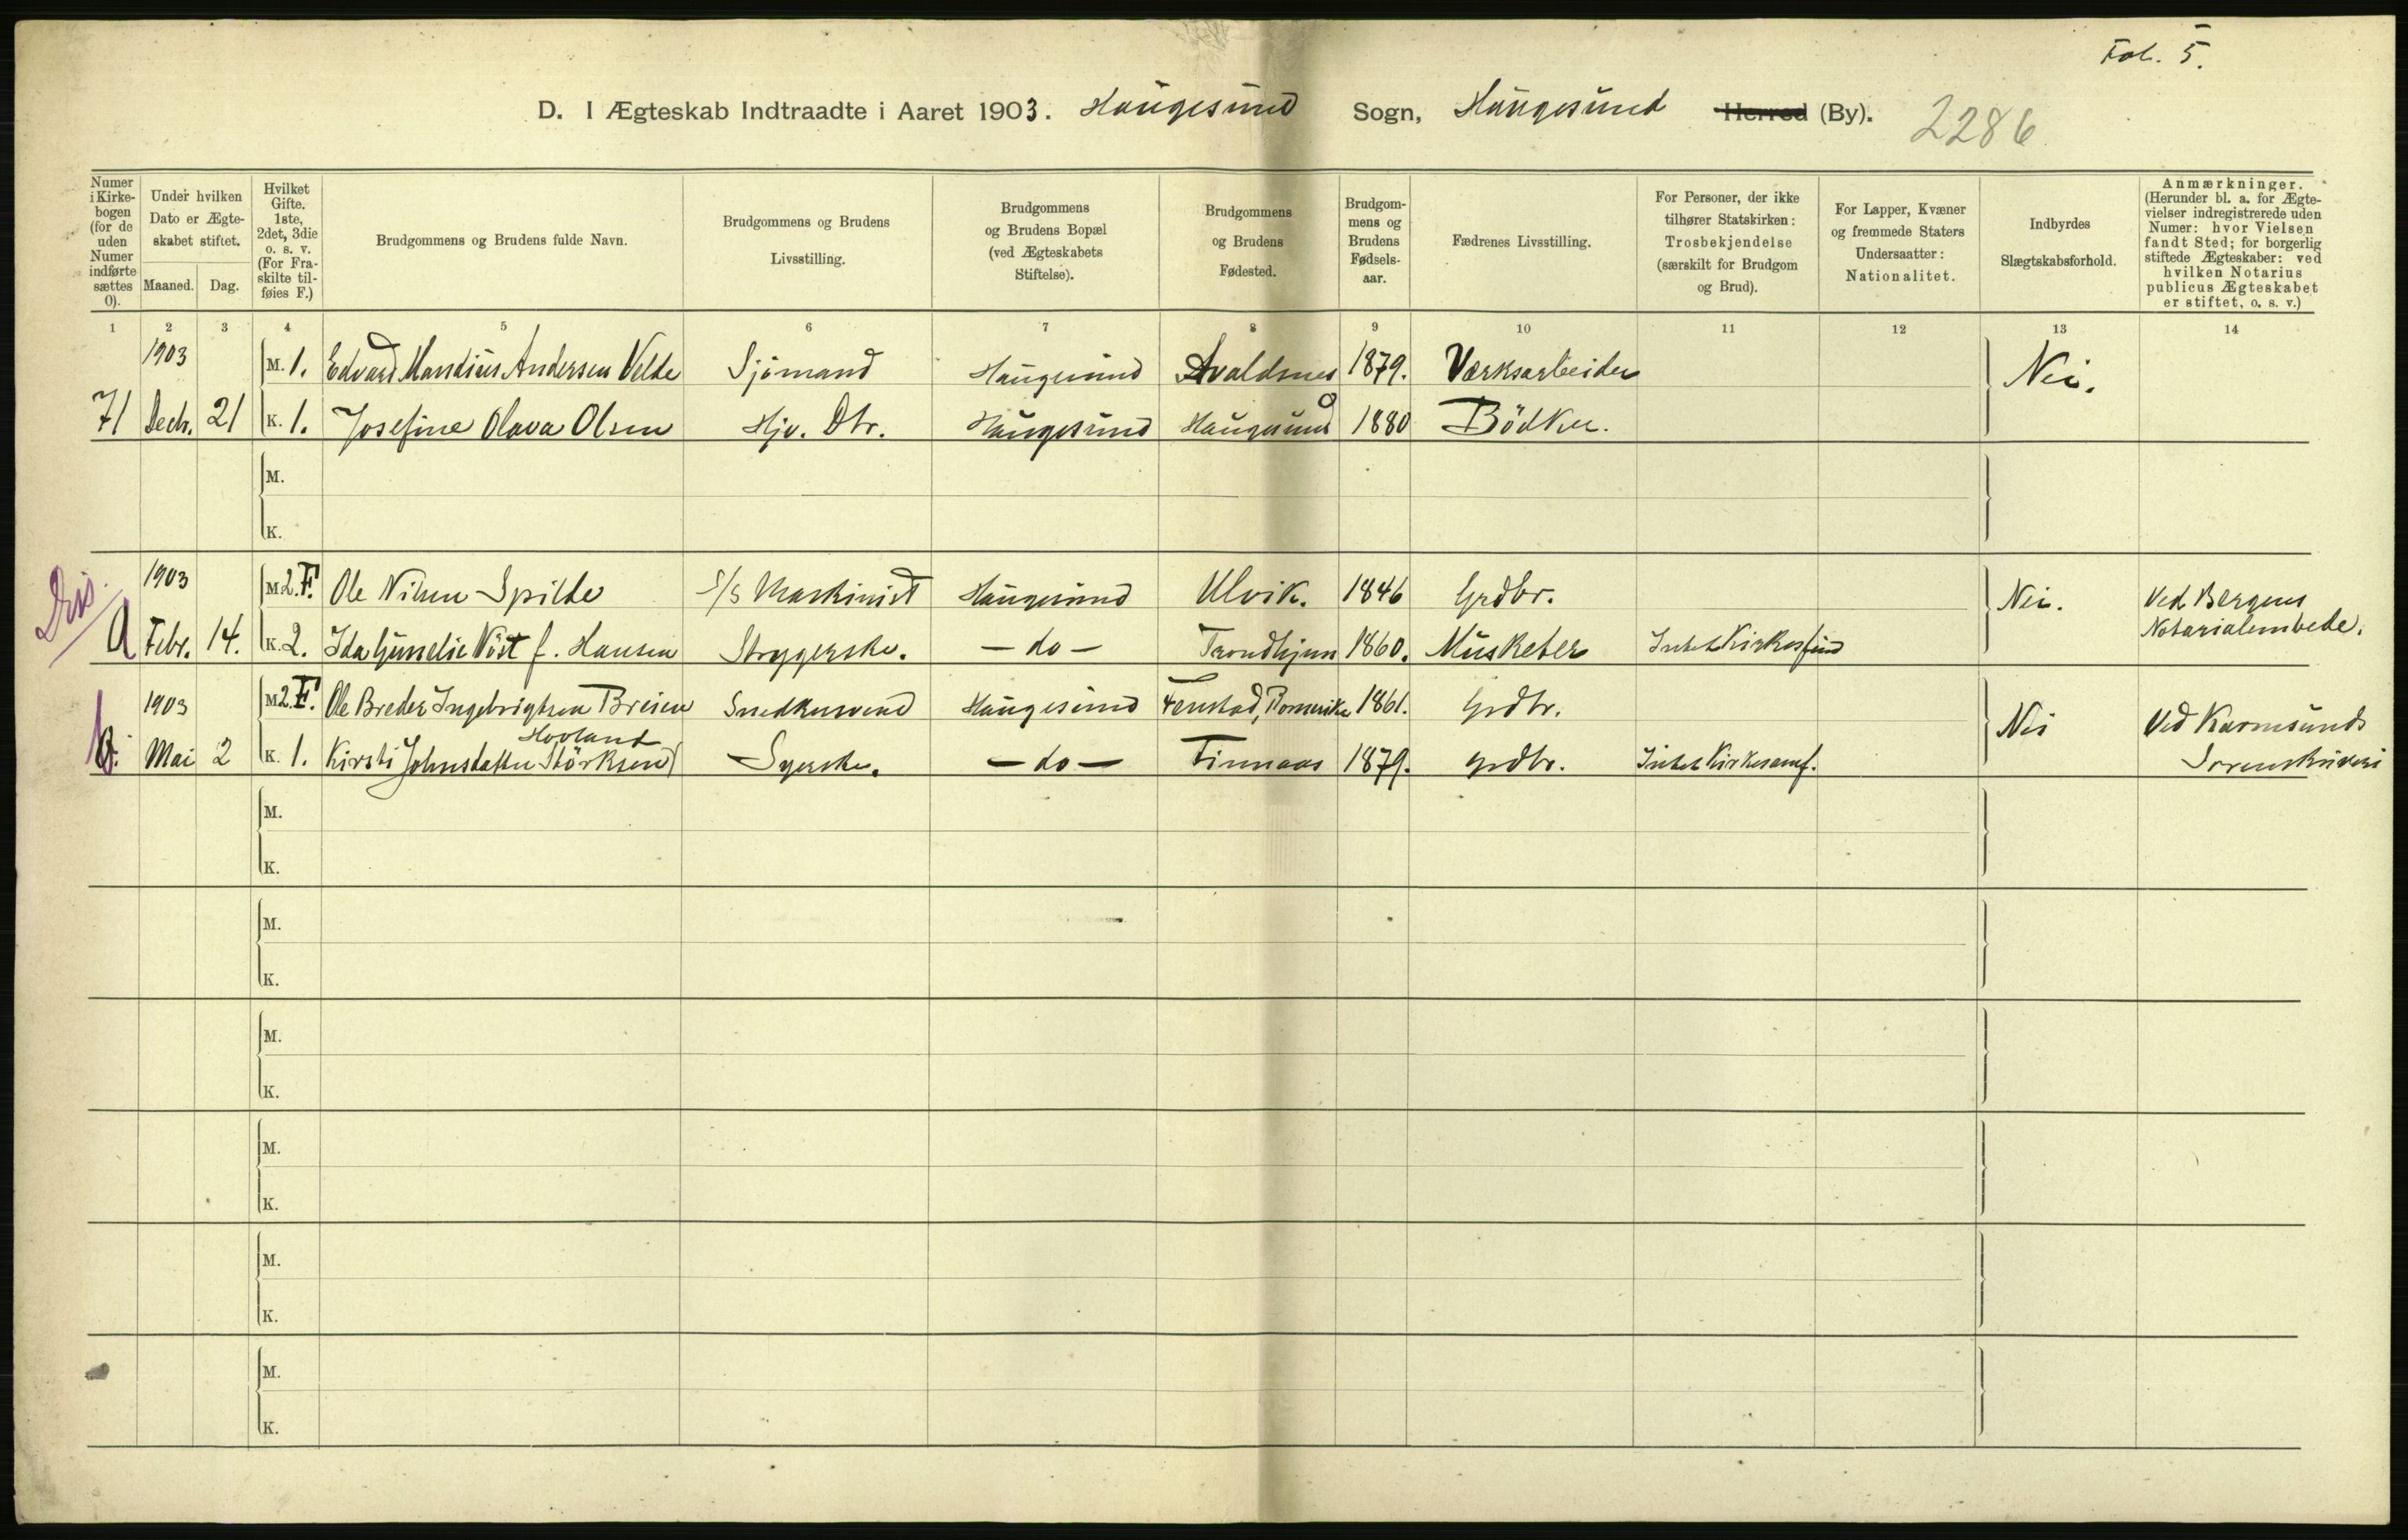 Fol. 5.
D. I Ægteskab Indtraadte i Aaret 1903. Haugesund Sogn, Haugesund Herred (By). 2286
Numer i Kirke-bogen (for de uden Numer indførte sættes 0).
Under hvilken Dato er Ægte-skabet stiftet.
Maaned. Dag.
Hvilket Gifte. 1ste, 2det, 3die o. s. v. (For Fra-skilte til-føies F.)
Brudgommens og Brudens fulde Navn.
Brudgommens og Brudens Livsstilling.
Brudgommens og Brudens Bopæl (ved Ægteskabets Stiftelse).
Brudgommens og Brudens Fødested.
Brudgom-mens og Brudens Fødsels-aar.
Fædrenes Livsstilling.
For Personer, der ikke tilhører Statskirken: Trosbekjendelse (særskilt for Brudgom og Brud).
For Lapper, Kvæner og fremmede Staters Undersaatter: Nationalitet.
Indbyrdes Slægtskabsforhold.
Anmærkninger. (Herunder bl. a. for Ægte-vielser indregistrerede uden Numer: hvor Vielsen fandt Sted; for borgerlig stiftede Ægteskaber: ved hvilken Notarius publicus Ægteskabet er stiftet, o. s. v.)
1 2 3 4 5 6 7 8 9 10 11 12 13 14
1903 M. 1. Edvard Mandius Andersen Velde Sjömand Haugesund Avaldsnes 1879. Værksarbeider Nei.
71 Decb. 21 K. 1. Josefine Olava Olsen Hjv. Dtr. Haugesund Haugesund 1880 Bödker.
M.
K.
Dis.
1903 M. 2. F. Ole Nilsen Spilde S/S Maskinist Haugesund Ulvik. 1846 Grdbr. Nei. Ved Bergens
A Febr. 14. K. 2. Ida f. Hansen Strygerske. - do - Trondhjem 1860. Musketer Intet Kirkesamfund Notarialembede.
1903 M. 2. F. Ole Breder Ingebrigtsen Breien Snedkersvend Haugesund Fenstad, Romerike 1861. Grdbr. Nei Ved Karmsunds
Hovland
B. Mai 2 K. 1. Kirsti Johnsdatter Störksen Syerske. - do - Finnaas 1879. Grdbr. Intet Kirkesamf. Sorenskriveri
M.
K.
M.
K.
M.
K.
M.
K.
M.
K.
M.
K.